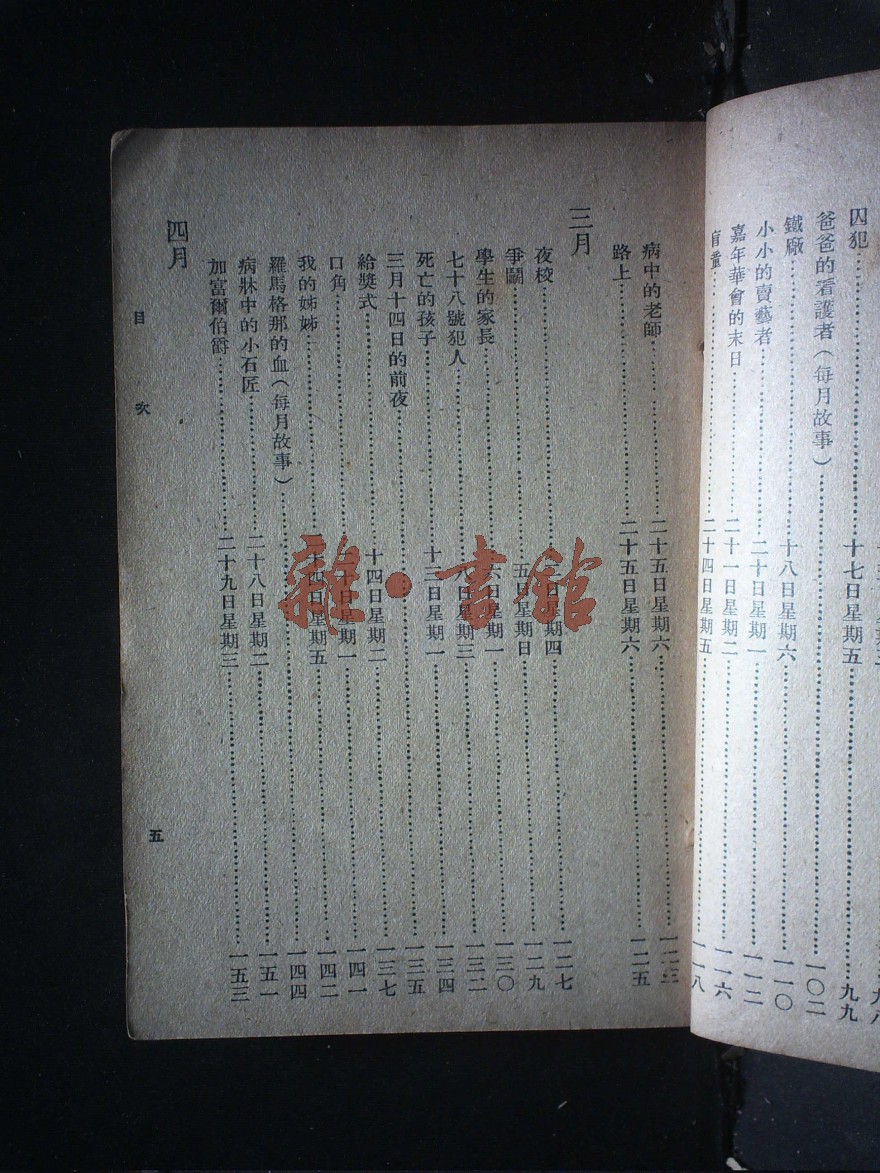 囚犯 十七日星期五 九九
爸爸的看護者(每月故事) 一〇二
鐵廠 十八日星期六 一一〇
小小的賣藝者 二十日星期一 一一二
嘉年華會的末日 二十一日星期二 一一六
盲童 二十四日星期五 一一八
病中的老師 二十五日星期六 一二三
路上 二十五日星期六 一二五
三月
夜校 日星期四 一二七
爭鬭 五日星期日 一二九
學生的家長 六日星期一 一三〇
七十八號犯人 八日星期三 一三二
死亡的孩子 十三日星期一 一三四
三月十四日的前夜 一三五
給獎式 十四日星期二 一三七
口角 十日星期一 一四一
我的姊姊 十四日星期五 一四二
羅馬格那的血(每月故事) 一四四
病牀中的小石匠 二十八日星期二 一五一
加富爾伯爵 二十九日星期三 一五三
四月
目次
五
雜·書館